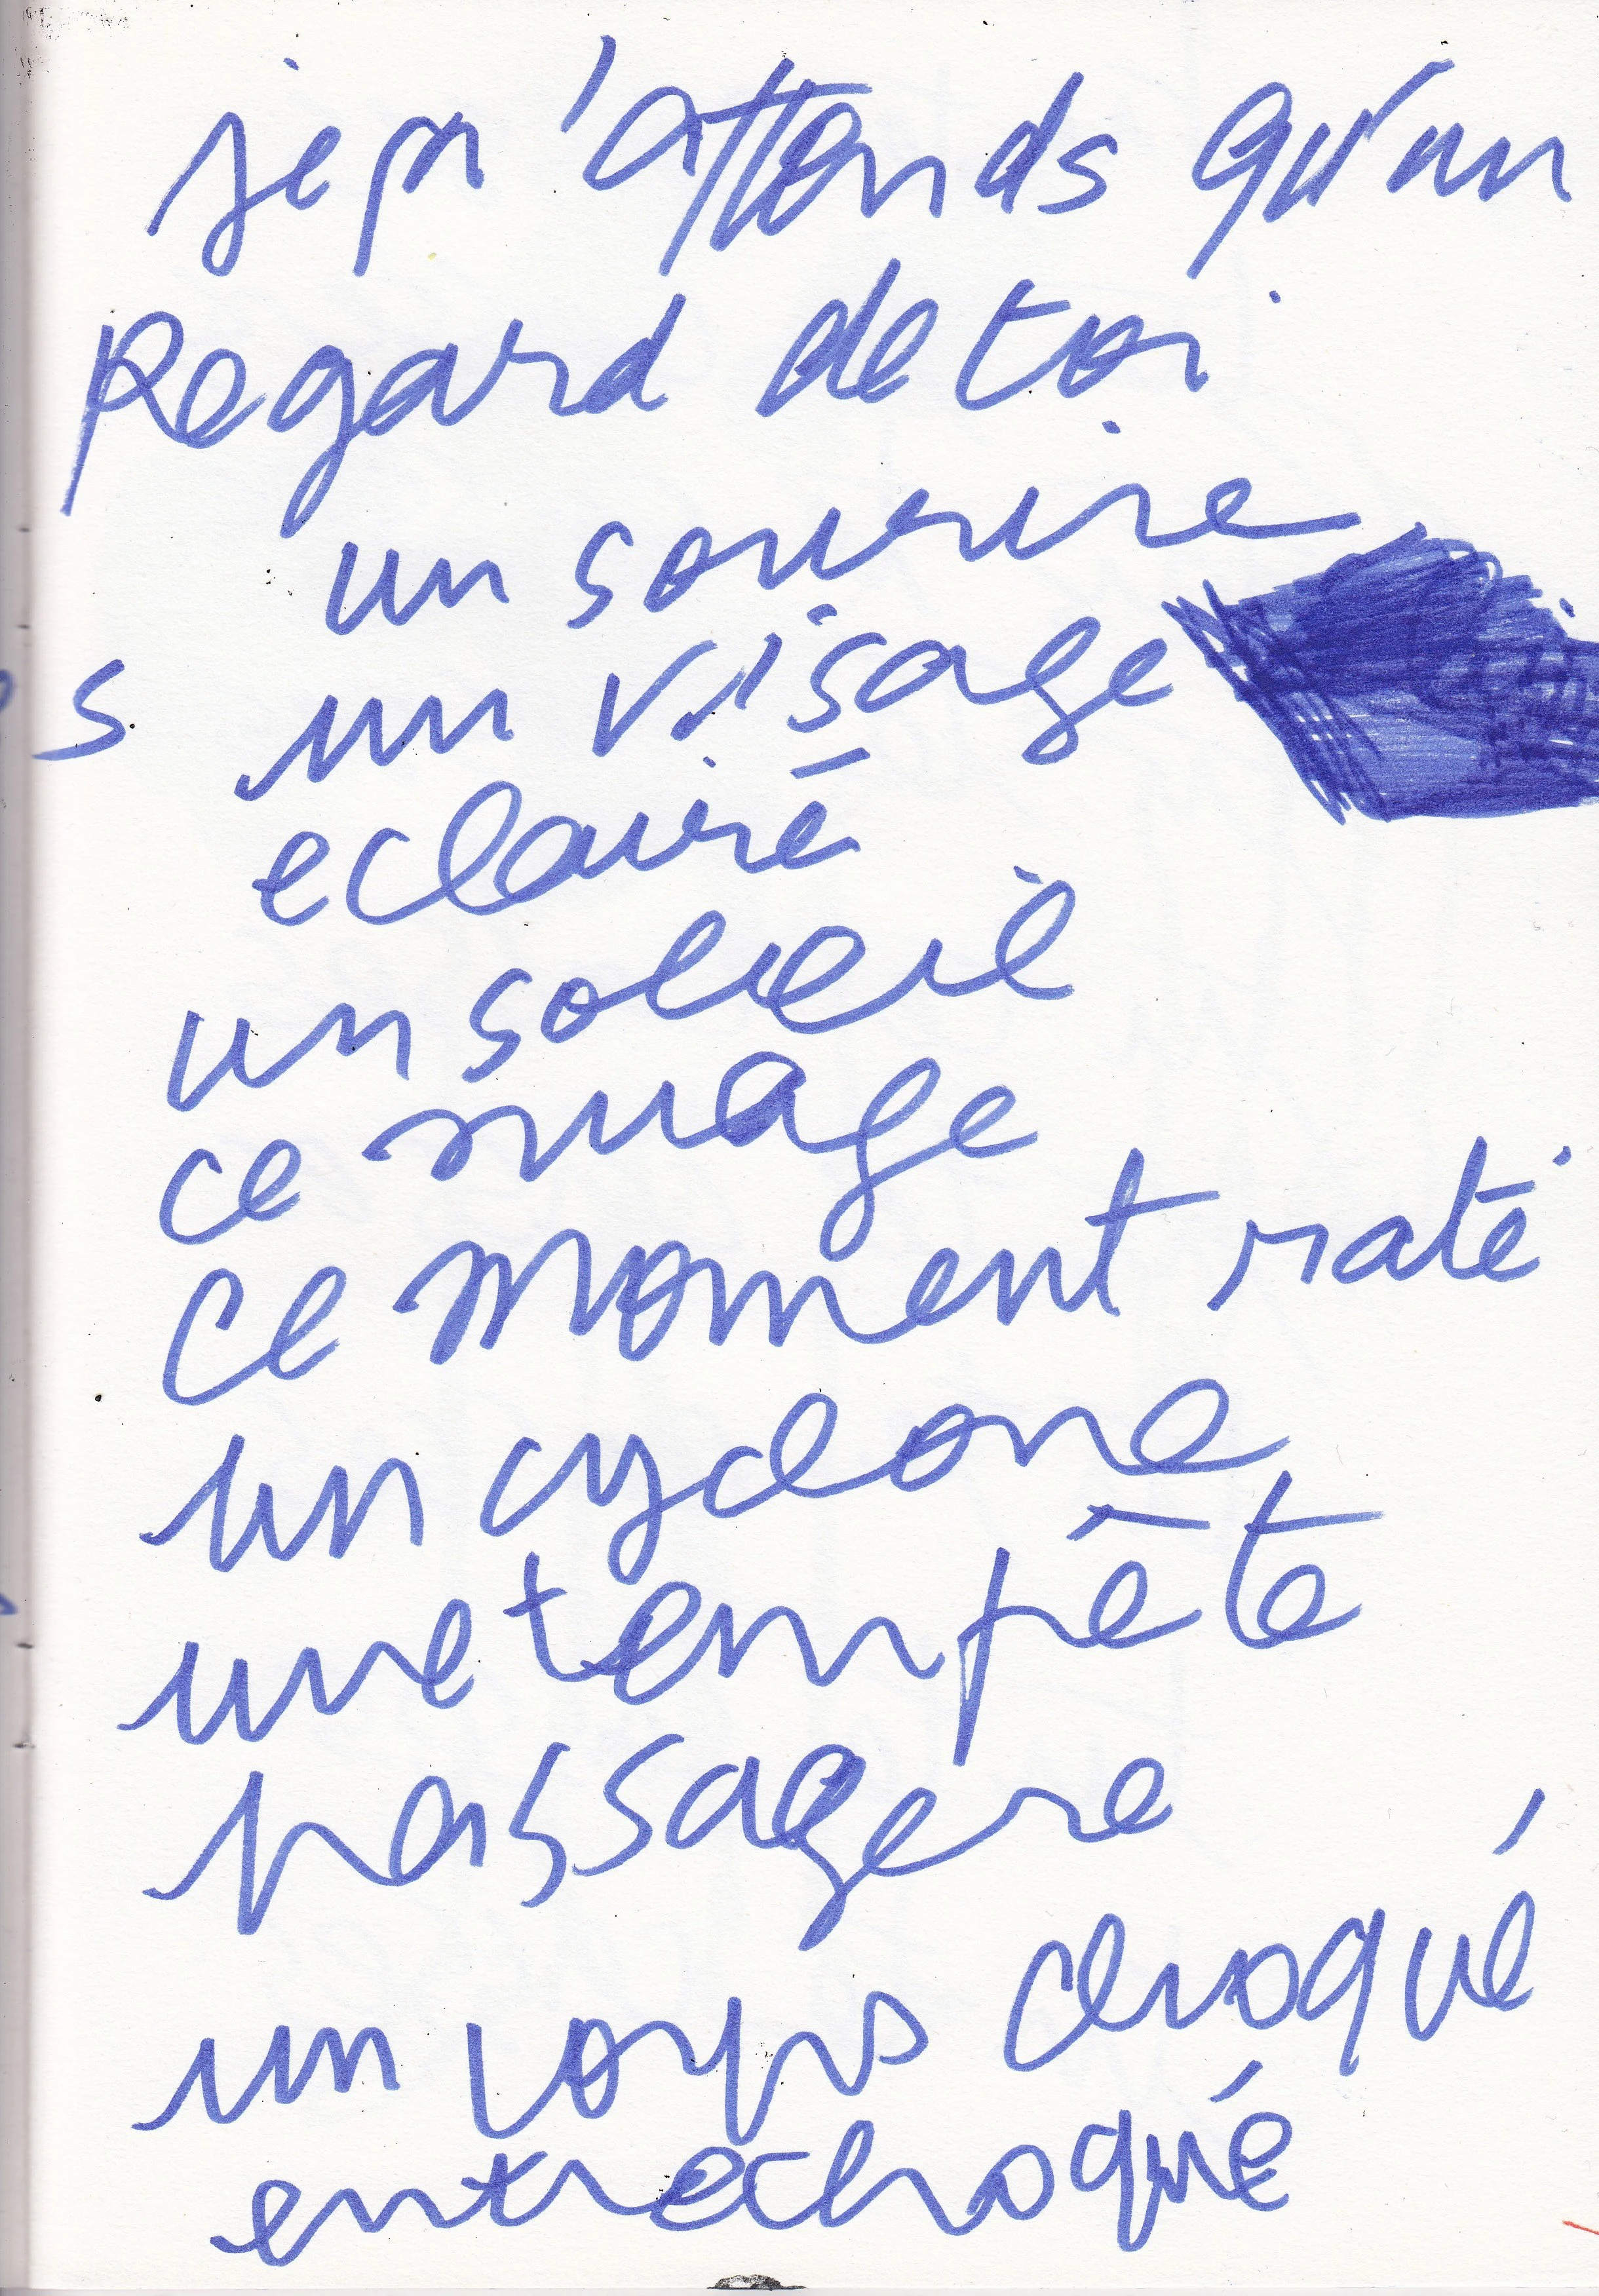 je n'attends qu'un
Regard de toi
un sourire
s un visage
eclairé
un soleil
ce nuage
ce moment raté
un cyclone
une tempête
passagere
un corps choqué
entrechoqué